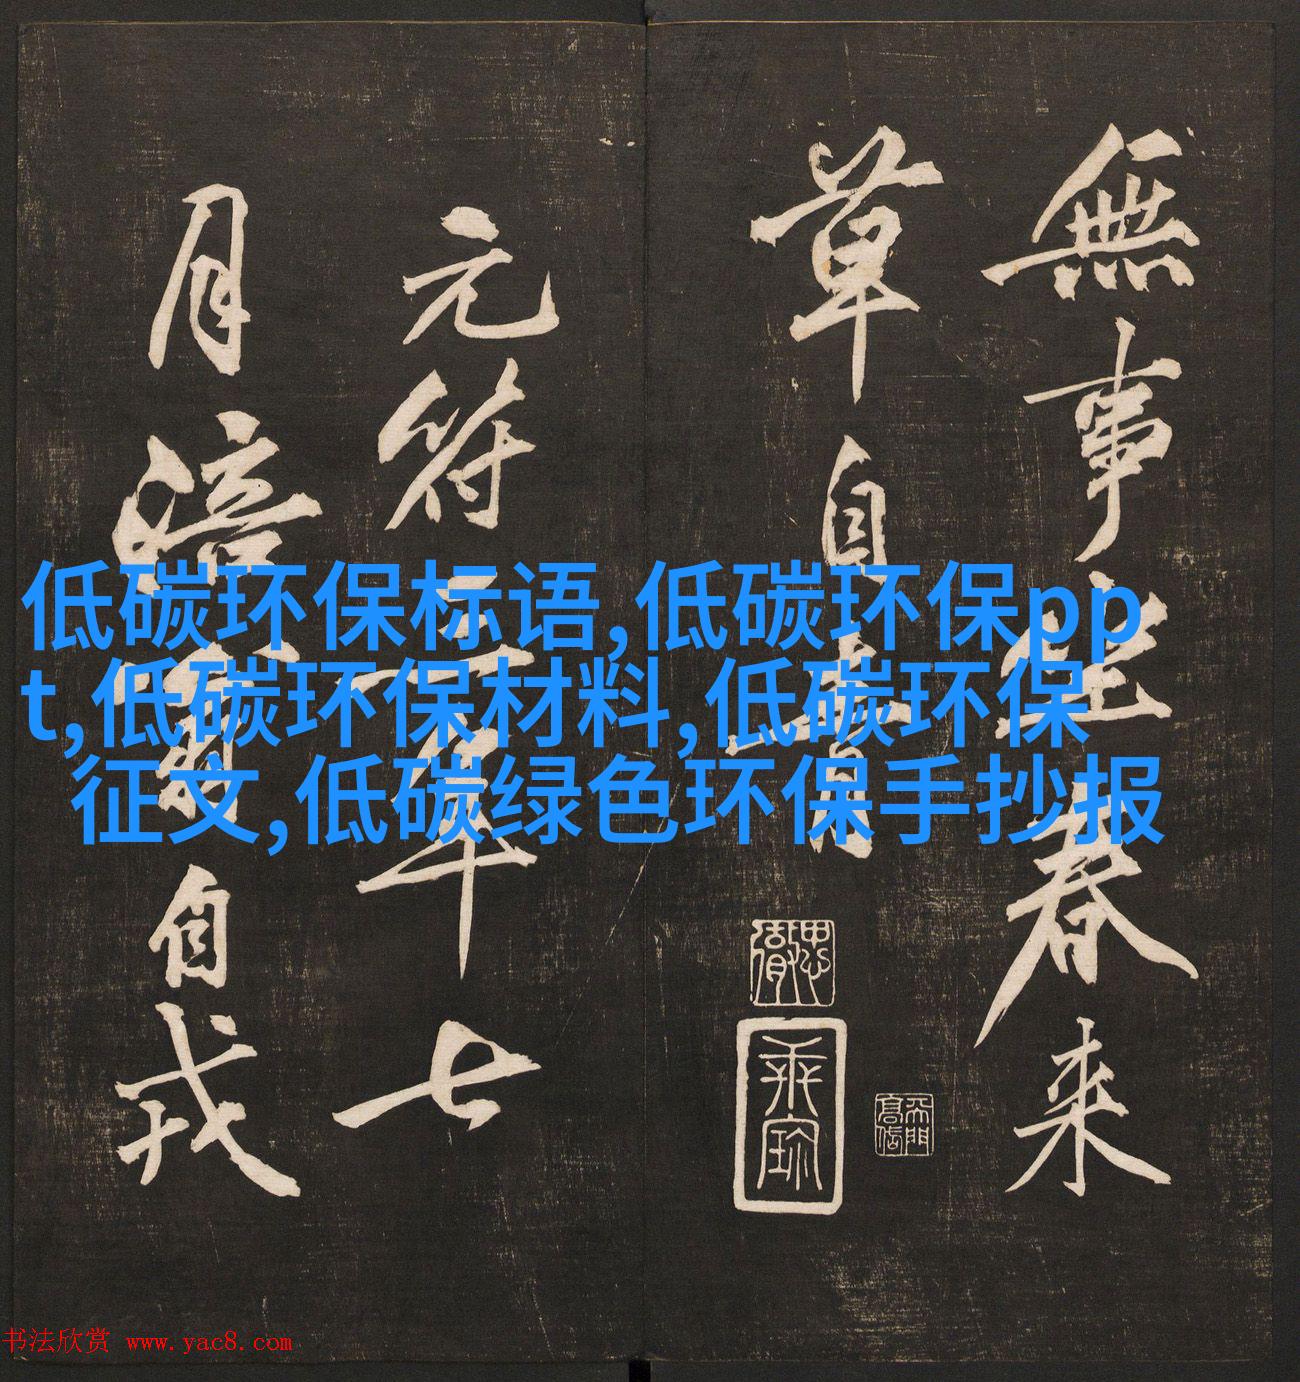 無事坐春来
草自青
元符三年七
月涪翁自戎
低碳环保标语,低碳环保pp
t,低碳环保材料,低碳环保
征文,低碳绿色环保手抄报
书法欣赏 www.yac8.com